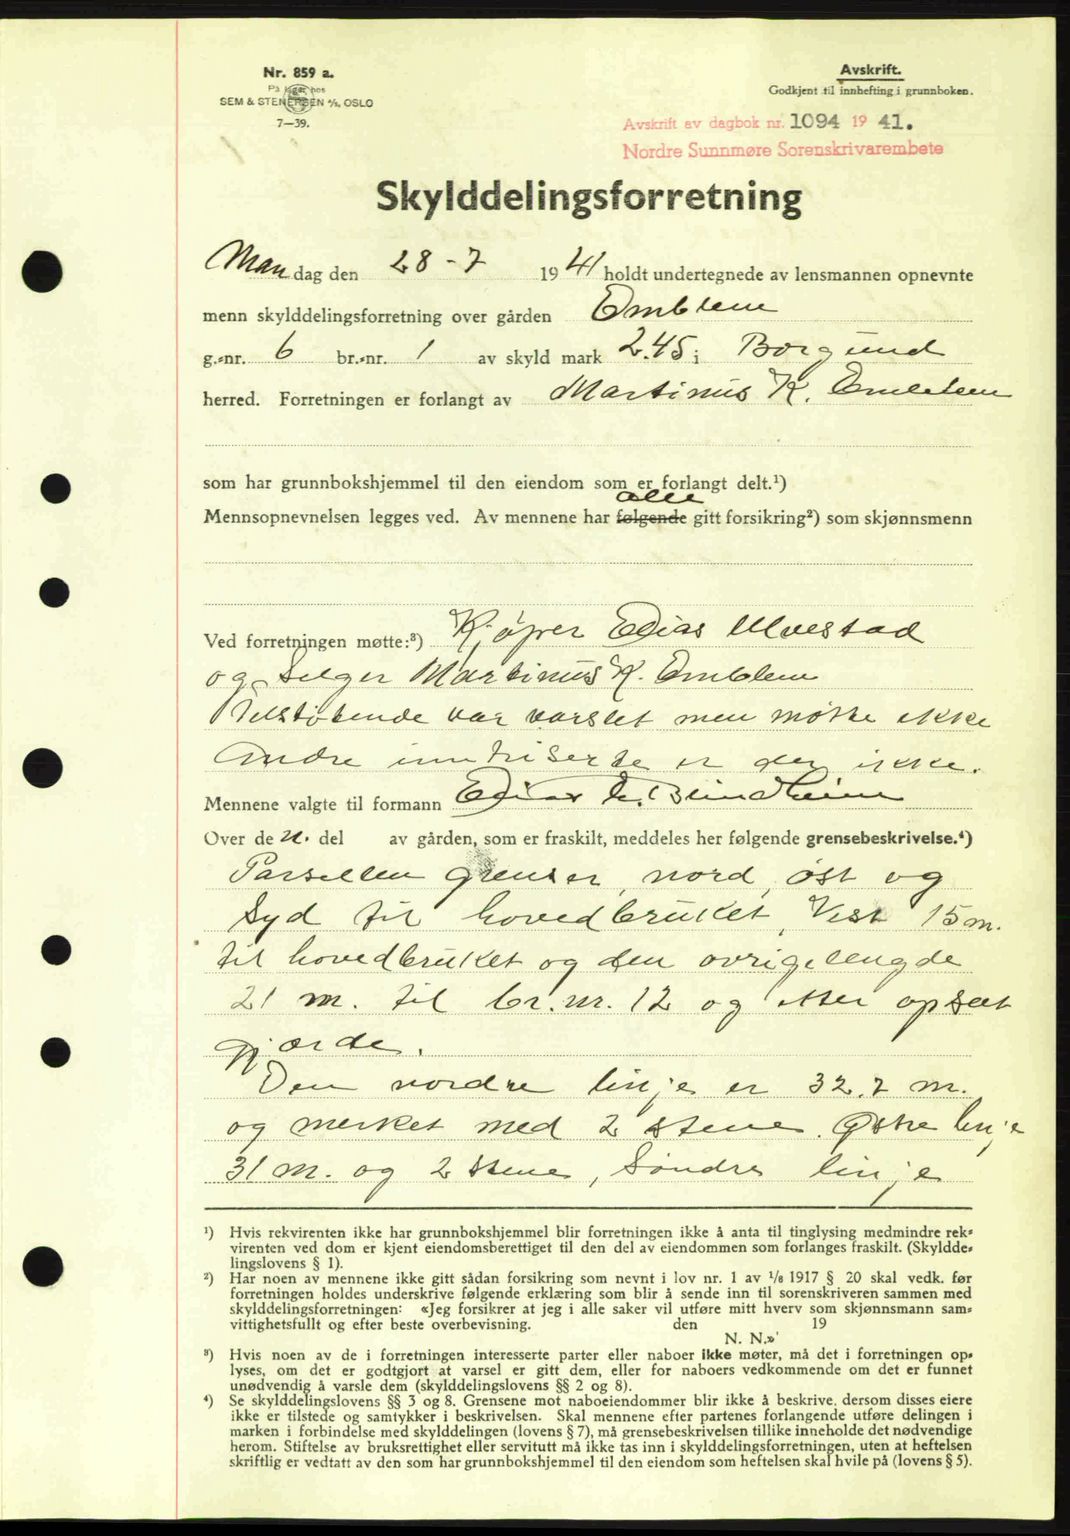 Nr. 859 a.
På lager hos
SEM & STENERSEN A/S, OSLO
7—39.
Avskrift.
Godkjent til innhefting i grunnboken.
Avskrift av dagbok nr. 1094 19 41.
Nordre Sunnmøre Sorenskrivarembete
Skylddelingsforretning
Man dag den 28-7 19 41 holdt undertegnede av lensmannen opnevnte
menn skylddelingsforretning over gården Emblem
g.-nr. 6 br.-nr. 1 av skyld mark 2.45 i Borgund
herred. Forretningen er forlangt av Martinus K. Emblem
som har grunnbokshjemmel til den eiendom som er forlangt delt.¹)
alle
Mennsopnevnelsen legges ved. Av mennene har følgende gitt forsikring²) som skjønnsmenn
Ved forretningen møtte:³) Kjøper Edias Ulvestad
og Selger Martinus K. Emblem
Tilstøtende var varslet men møtte ikke
Andre inntriserte er der ikke.
Mennene valgte til formann
Over de n. del av gården, som er fraskilt, meddeles her følgende grensebeskrivelse.⁴)
Parsellen grenser, nord, øst og
Syd til hovedbruket, Vest 15 m.
til hovedbruket og den øvrige lengde
21 m. til br. nr. 12 og etter opsatt
gjærde.
Den nordre linje er 32.7 m.
og merket med 2 stene. Østre linje
31 m. og 2 stene, Søndre linje
¹) Hvis rekvirenten ikke har grunnbokshjemmel blir forretningen ikke å anta til tinglysing medmindre rek-
virenten ved dom er kjent eiendomsberettiget til den del av eiendommen som forlanges fraskilt. (Skyldde-
lingslovens § 1).
²) Har noen av mennene ikke gitt sådan forsikring som nevnt i lov nr. 1 av 1/8 1917 § 20 skal vedk. før
forretningen holdes underskrive følgende erklæring som blir å sende inn til sorenskriveren sammen med
skylddelingsforretningen: «Jeg forsikrer at jeg i alle saker vil utføre mitt hverv som skjønnsmann sam-
vittighetsfullt og efter beste overbevisning. den 19
N. N.»
³) Hvis noen av de i forretningen interesserte parter eller naboer ikke møter, må det i forretningen op-
lyses, om det er godtgjort at varsel er gitt dem, eller for naboers vedkommende om det er funnet
unødvendig å varsle dem (skylddelingslovens §§ 2 og 8).
⁴) Se skylddelingslovens §§ 3 og 8. Grensene mot naboeiendommer blir ikke å beskrive, dersom disses eiere
ikke er tilstede og samtykker i beskrivelsen. Skal mennene efter partenes forlangende utføre delingen i
marken i forbindelse med skylddelingen (lovens § 7), må grensebeskrivelsen tillike inneholde det nødvendige
herom. Stiftelse av bruksrettighet eller servitutt må ikke tas inn i skylddelingsforretningen, uten at heftelsen
skriftlig er vedtatt av den som har grunnbokshjemmel til den eiendom som heftelsen skal hvile på (lovens § 5).